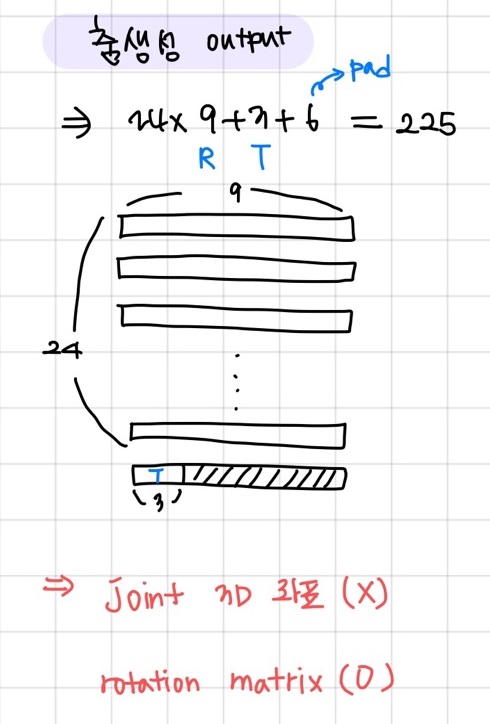 춤생성 output
pad
⇒ 24 x 9 + 3 + 6 = 225
R T
9
24
T
3
⇒ Joint 3D 좌표 (X)
rotation matrix (O)